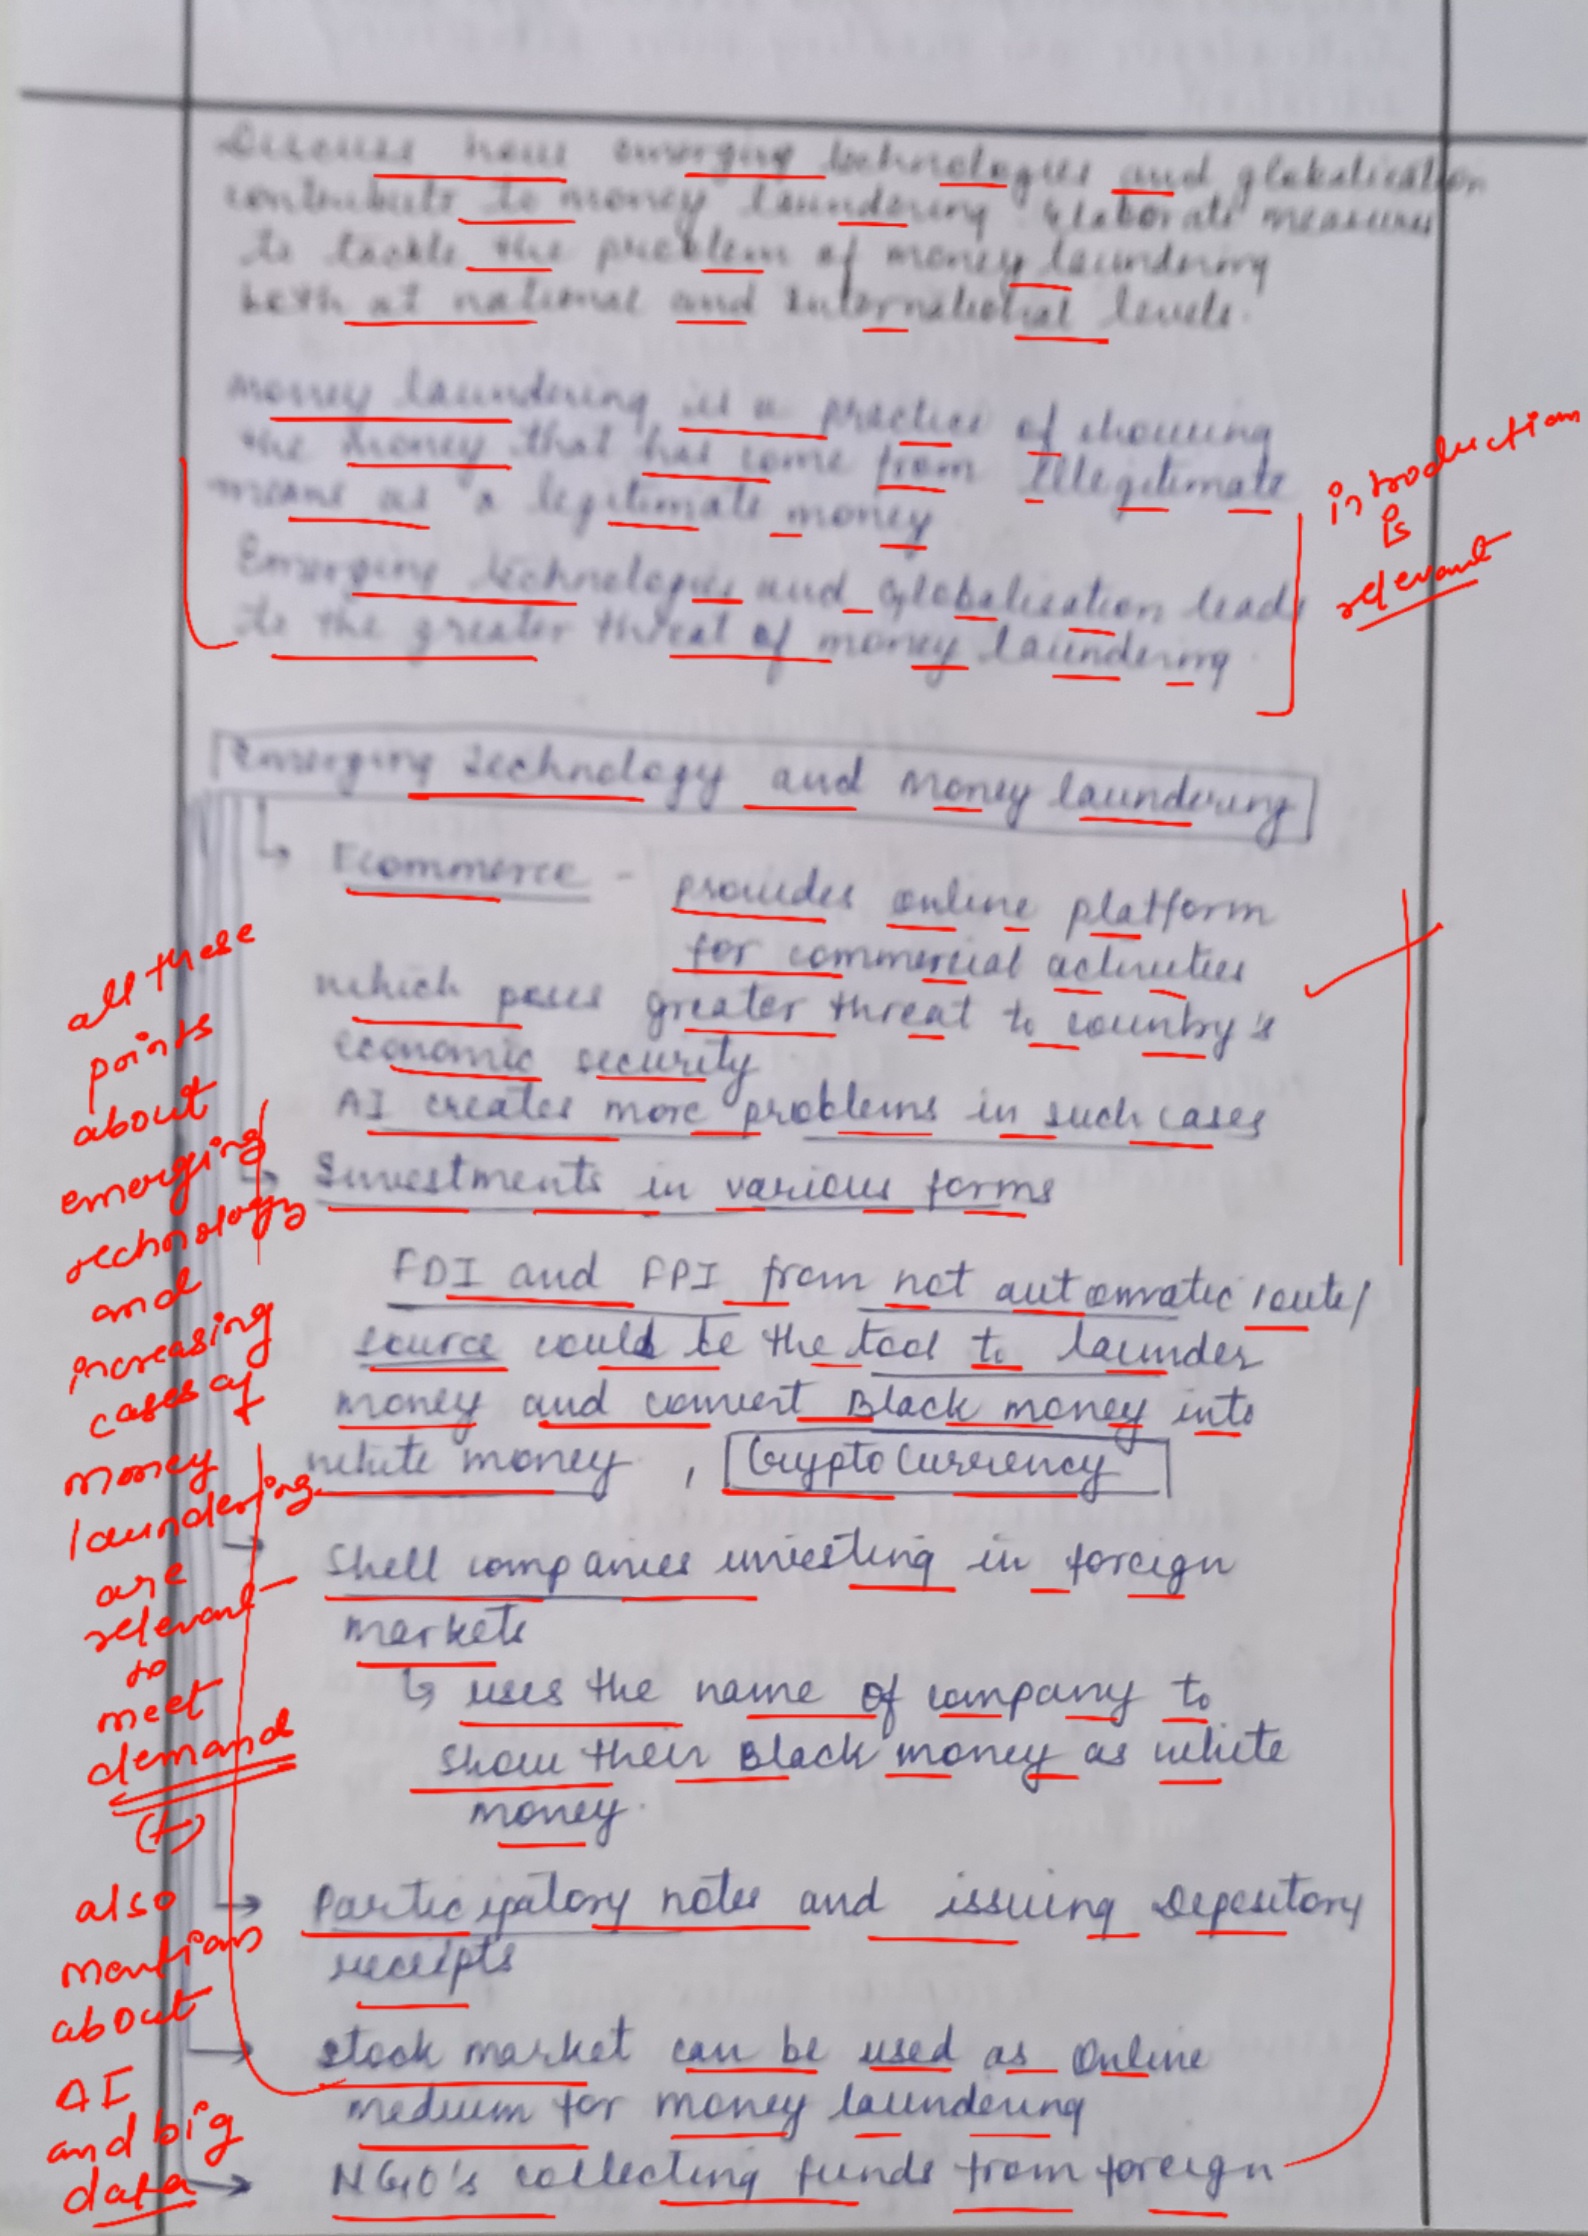 Discuss how emerging technologies and globalisation
contribute to money laundering. Elaborate measures
to tackle the problem of money laundering
both at national and international levels.
Money laundering is a practice of showing
the money that has come from illegitimate
means as a legitimate money
Emerging technologies and Globalisation leads
to the greater threat of money laundering.
introduction
is
relevant
Emerging technology and Money laundering
Ecommerce - provides online platform
for commercial activities
which poses greater threat to country's
economic security
AI creates more problems in such cases
Investments in various forms
FDI and FPI from not automatic route/
source could be the tool to launder
money and convert Black money into
white money , Cryptocurrency
Shell companies investing in foreign
markets
↳ uses the name of company to
show their Black money as white
money.
Participatory notes and issuing Depository
receipts
Stock market can be used as Online
medium for money laundering
NGO's collecting funds from foreign
all these
points
about
emerging
technology
and
increasing
cases of
money
laundering
are
relevant
to
meet
demand
(+)
also
mention
about
AI
and big
data